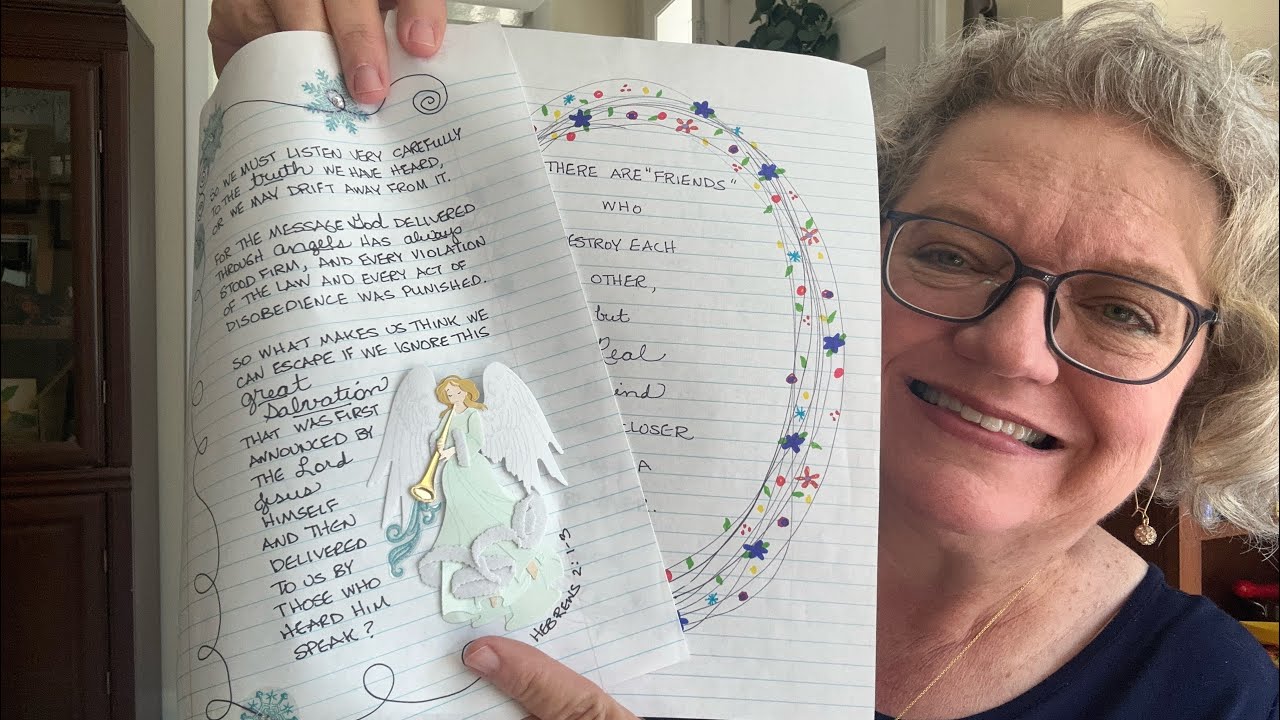 SO WE MUST LISTEN VERY CAREFULLY
TO THE truth WE HAVE HEARD,
OR WE MAY DRIFT AWAY FROM IT.
FOR THE MESSAGE God DELIVERED
THROUGH angels HAS always
STOOD FIRM, AND EVERY VIOLATION
OF THE LAW AND EVERY ACT OF
DISOBEDIENCE WAS PUNISHED.
SO WHAT MAKES US THINK WE
CAN ESCAPE IF WE IGNORE THIS
great
Salvation
THAT WAS FIRST
ANNOUNCED BY
THE Lord
Jesus
HIMSELF
AND THEN
DELIVERED
TO US BY
THOSE WHO
HEARD HIM
SPEAK?
HEBREWS 2:1-3
THERE ARE "FRIENDS"
WHO
EACH
OTHER,
but
A